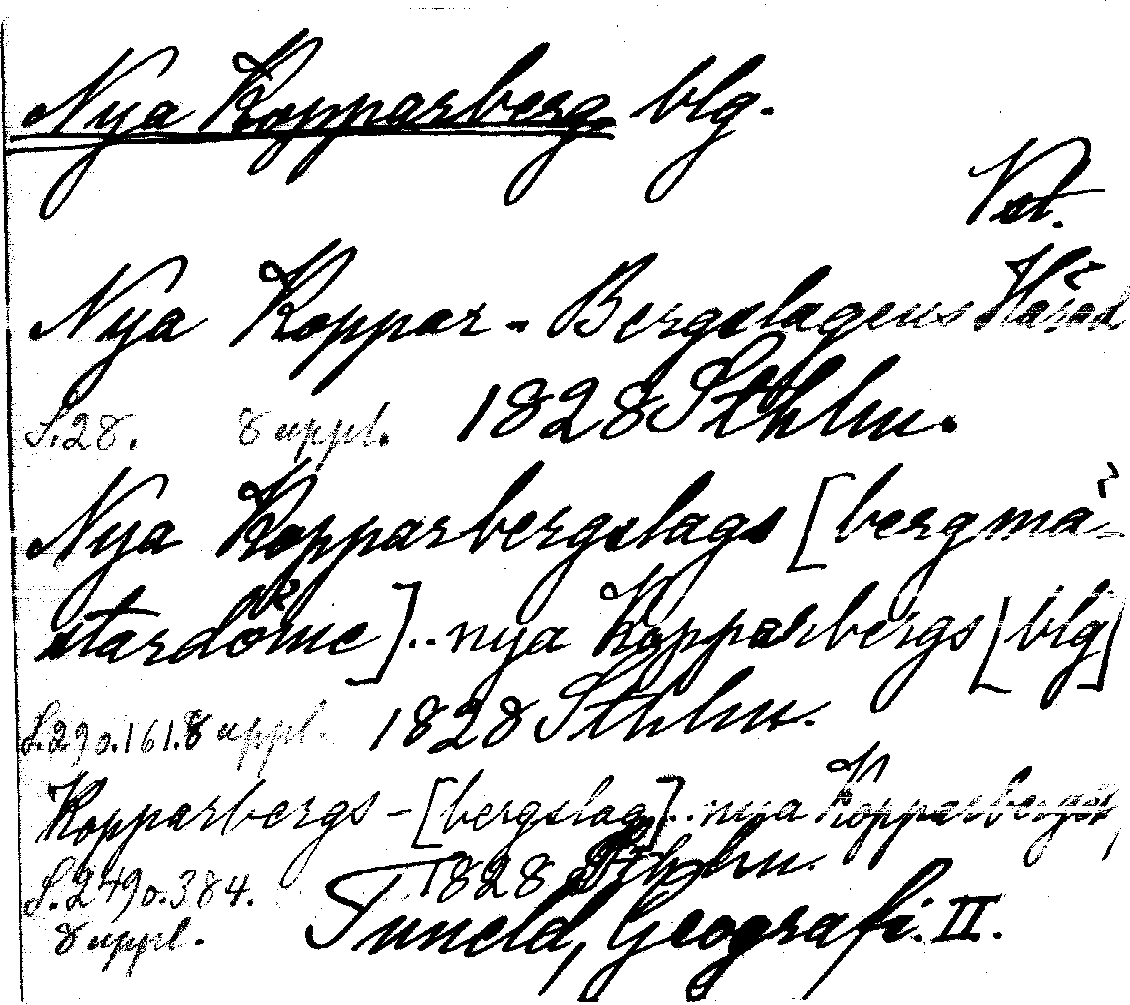 Nya Kopparberg blg.
Vst.
Nya Koppar-Bergslagens Härad
S.28. 8 uppl. 1828 Sthlm.
Nya Kopparbergslags [bergmä-
stardöme]..nya Kopparbergs [blg]
S.29 o.161. 8 uppl. 1828 Sthlm.
Kopparbergs-[bergslag]..nya Kopparbergs,
S.249 o.384. 1828 Sthlm.
8 uppl. Tuneld, Geografi. II.